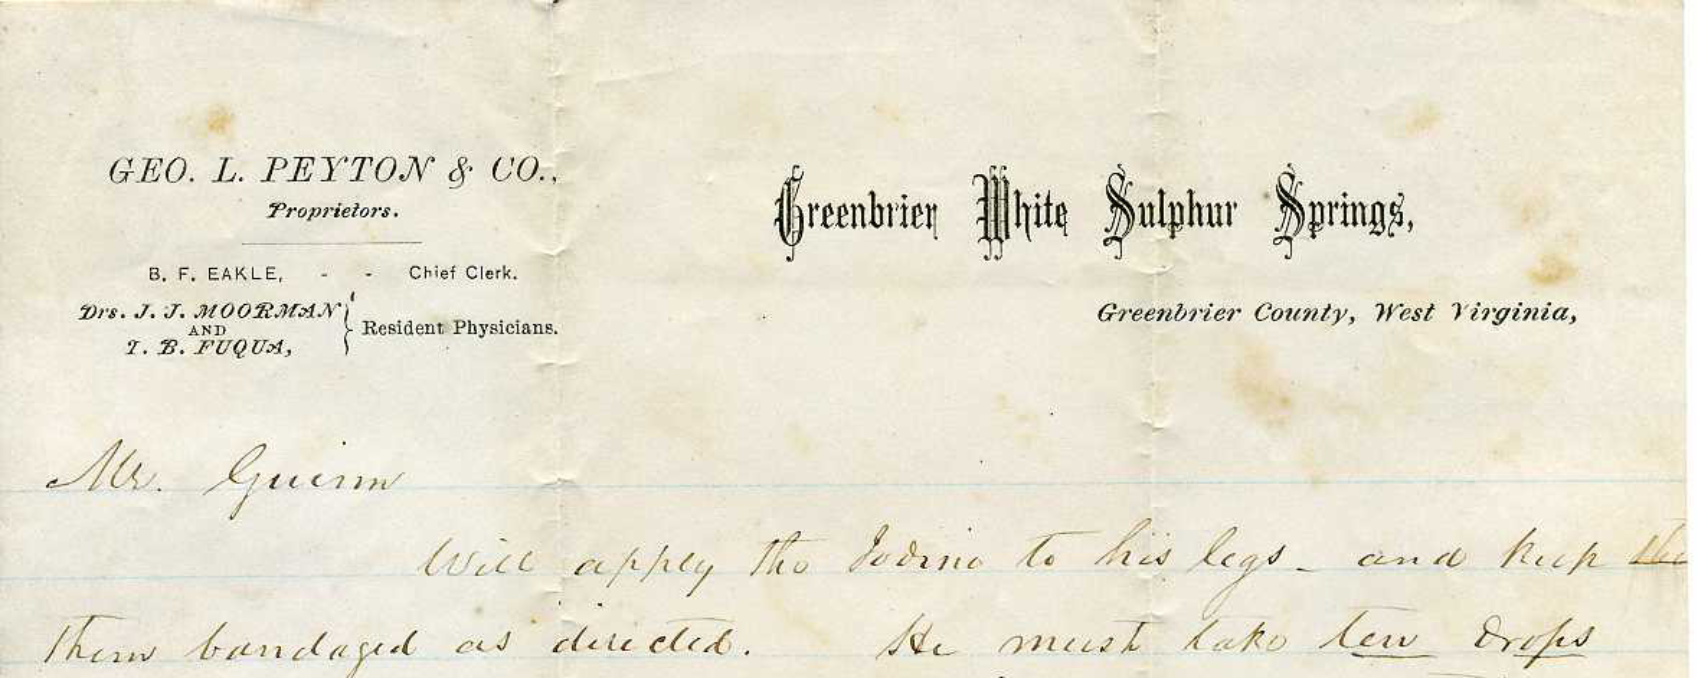 GEO. L. PEYTON & CO.,
Proprietors.
B. F. EAKLE, - - Chief Clerk.
Drs. J. J. MOORMAN
AND
I. B. FUQUA,
} Resident Physicians.
Greenbrier White Sulphur Springs,
Greenbrier County, West Virginia,
Mr. Guinn
Will apply the Iodine to his legs - and keep the
them bandaged as directed. He must take ten drops